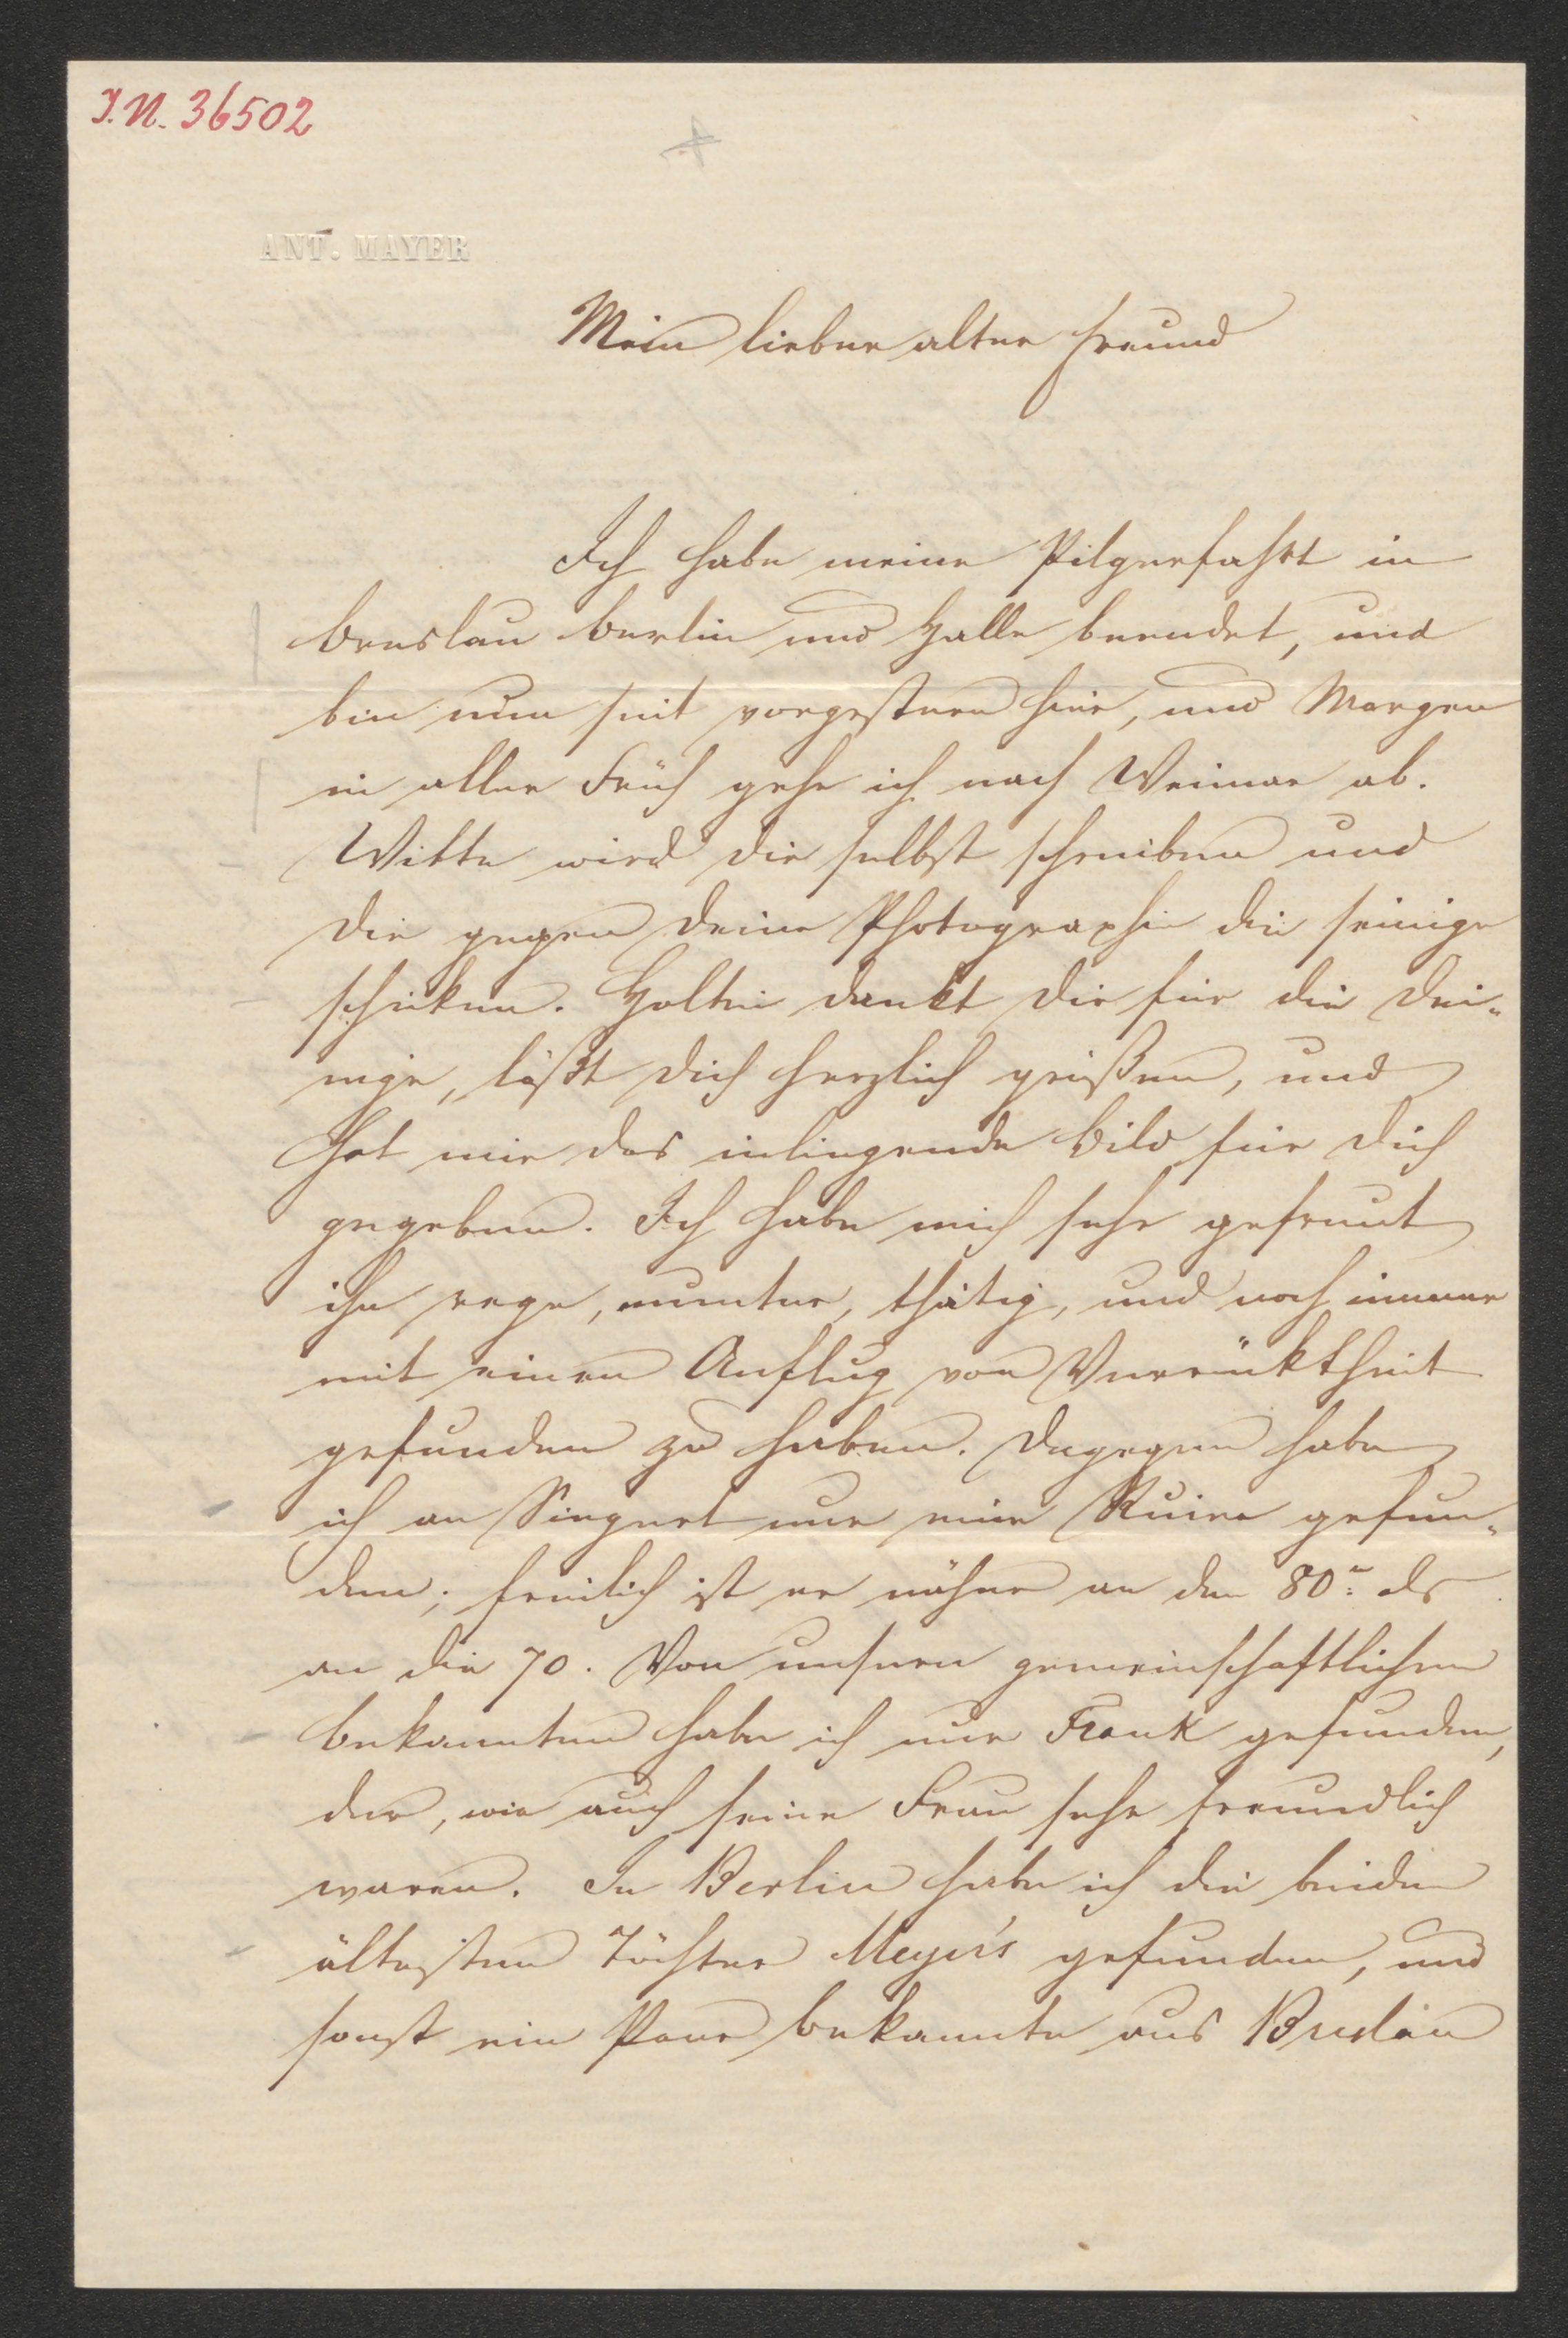 I.N. 36502
ANT. MAYER
Mein lieber alter Freund
Ich habe meine Pilgerfahrt in
Breslau Berlin und Halle beendet, und
bin nun seit vorgestern hier, und Morgen
in aller Früh gehe ich nach Weimar ab.
Witte wird dir selbst schreiben und
dir gegen deine Photographie die seinige
schiken. Holtei dankt dir für die dei-
nige, läßt dich herzlich grüßen, und
hat mir das inliegende Bild für dich
gegeben. Ich habe mich sehr gefreut
ihn rege, munter, thätig, und noch immer
mit einen Anflug von Verrüktheit
gefunden zu haben. Dagegen habe
ich an Siegert nur eine Ruine gefun-
den; freilich ist er näher an den 80n als
an die 70. Von unseren gemeinschaftlichen
Bekannten habe ich nur Frank gefunden,
der, wie auch seine Frau sehr freundlich
waren. In Berlin habe ich die beiden
ältesten Töchter Meyer's gefunden, und
sonst ein Paar Bekannte aus Breslau